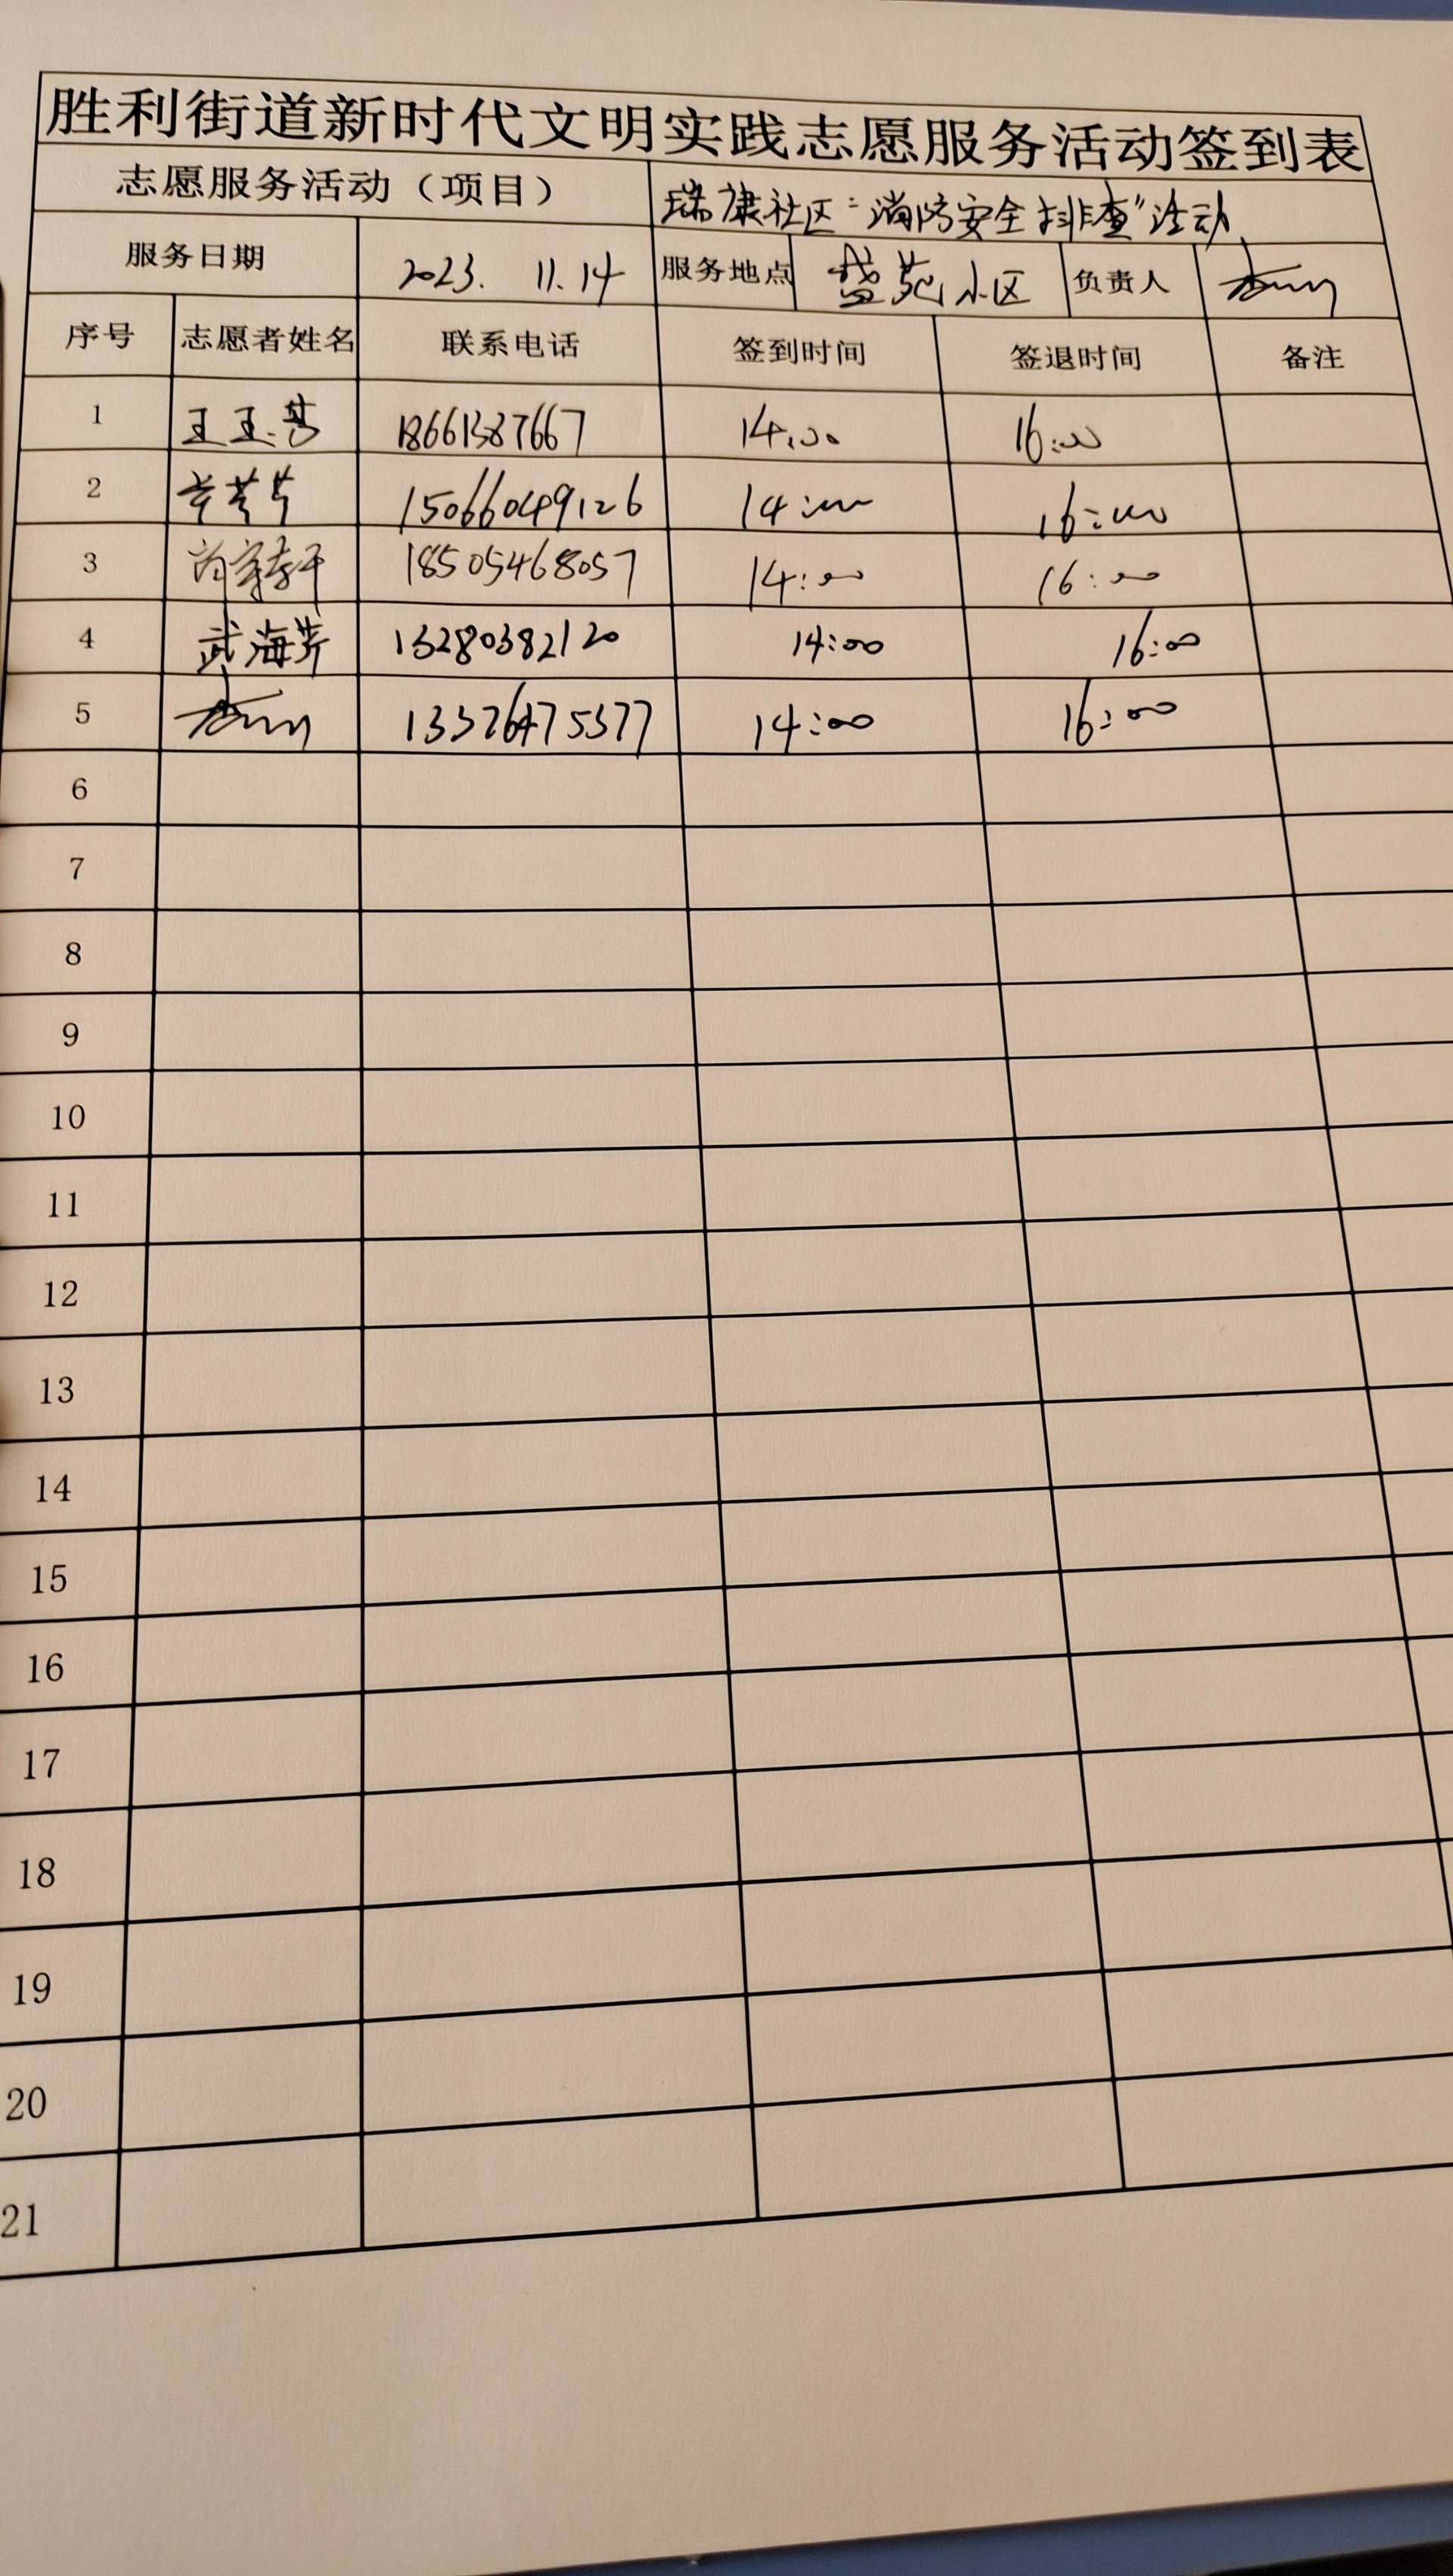 胜利街道新时代文明实践志愿服务活动签到表
志愿服务活动（项目） 瑞康社区“消防安全排查”活动
服务日期 2023. 11.14 服务地点 盛苑小区 负责人
序号 志愿者姓名 联系电话 签到时间 签退时间 备注
1 18661387667 14:00 16:00
2 15066049126 14:00 16:00
3 18505468057 14:00 16:00
4 武海芹 13280382120 14:00 16:00
5 14:00 16:00
6
7
8
9
10
11
12
13
14
15
16
17
18
19
20
21